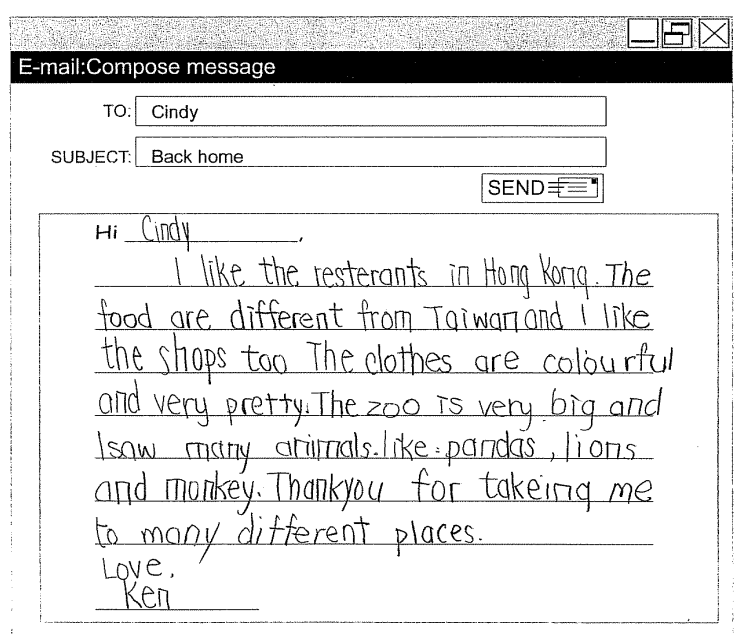 E-mail:Compose message
TO: Cindy
SUBJECT: Back home
SEND
Hi Cindy,
I like the resterants in Hong Kong. The
food are different from Taiwan and I like
the shops too The clothes are colourful
and very pretty. The zoo is very big and
I saw many animals. like: pandas, lions
and monkey. Thankyou for takeing me
to many different places.
Love,
Ken